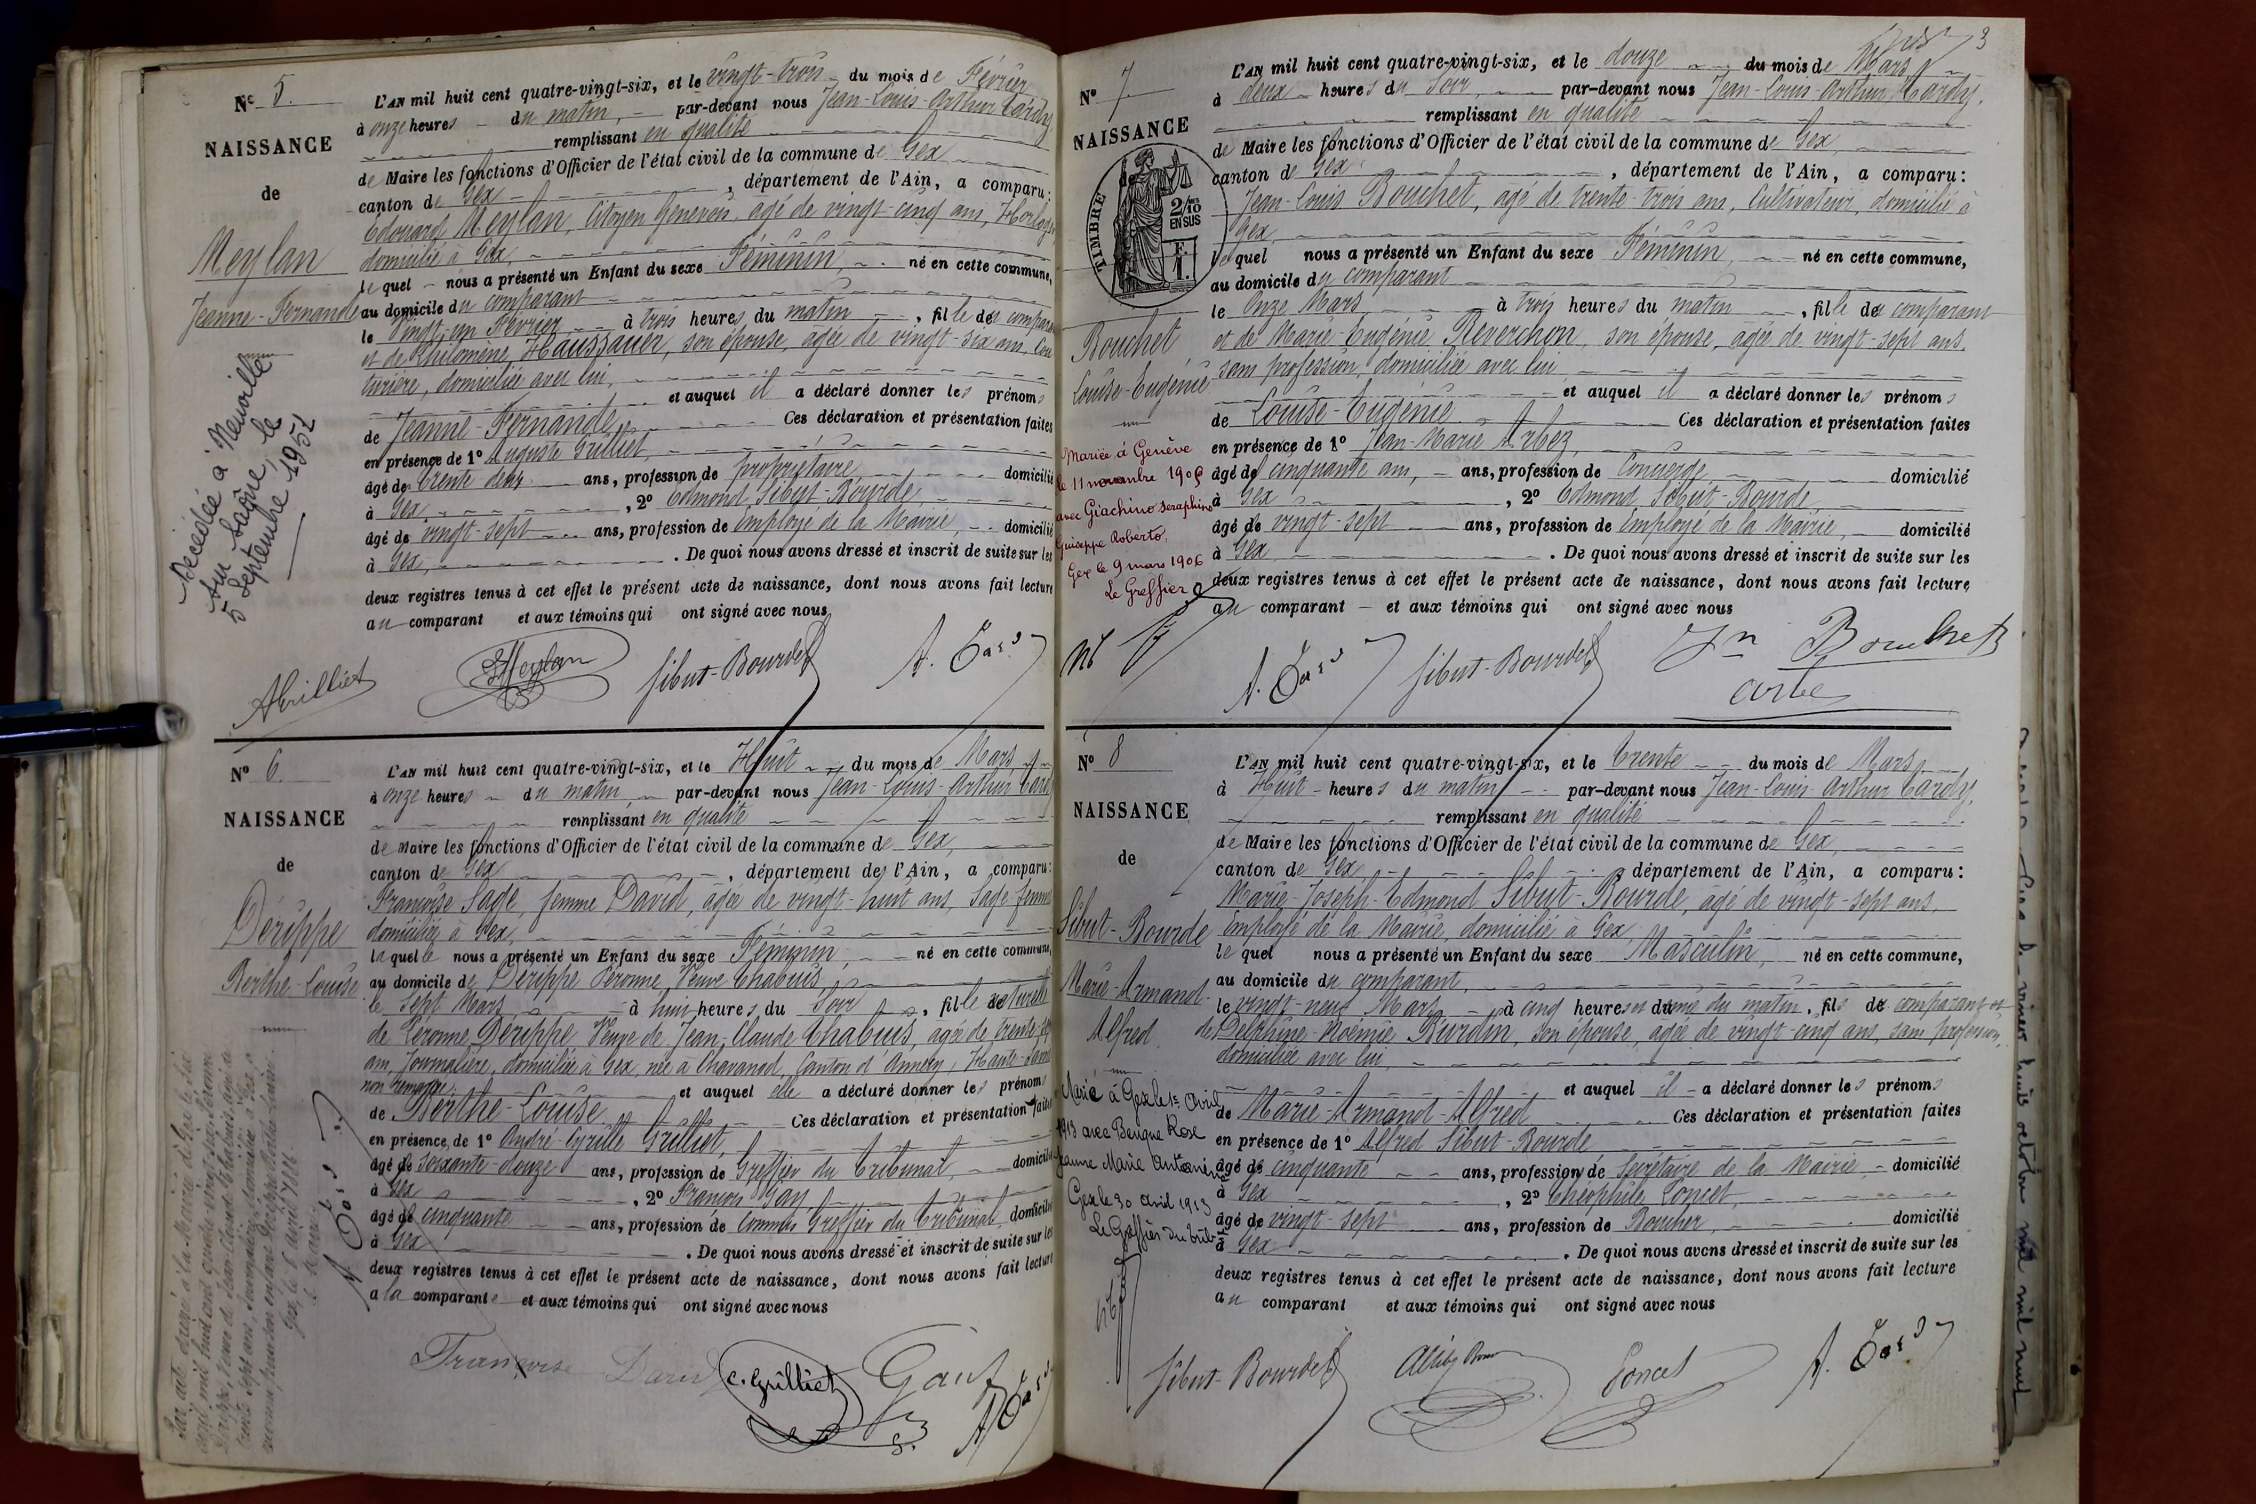 Nº 5.
NAISSANCE
de
Meylan
Jeanne-Fernande
Décédée à Neuville
sur Saône, le
5 Septembre 1951
L'AN mil huit cent quatre-vingt-six, et le vingt-trois du mois de Février
à onze heures du matin, par-devant nous Jean-Louis-Arthur Cardy
remplissant en qualité
de Maire les fonctions d'Officier de l'état civil de la commune de Gex
canton de Gex, département de l'Ain, a comparu:
Edouard Meylan, Citoyen Genevois, agé de vingt-cinq ans, Horloger
domicilié à Gex,
lequel nous a présenté un Enfant du sexe Féminin, né en cette commune,
au domicile du comparant
le Vingt-un Février à trois heures du matin, fille des comparant
et de Philomène Haussauer, son épouse, agée de vingt-six ans, Cou
turière, domiciliée avec lui,
et auquel il a déclaré donner les prénoms
de Jeanne-Fernande Ces déclaration et présentation faites
en présence de 1º Auguste Grilliet,
âgé de trente deux ans, profession de propriétaire domicilié
à Gex, 2º Edmond Sibut-Bourde
âgé de vingt-sept ans, profession de Employé de la Mairie, domicilié
à Gex, . De quoi nous avons dressé et inscrit de suite sur les
deux registres tenus à cet effet le présent acte de naissance, dont nous avons fait lecture
au comparant et aux témoins qui ont signé avec nous
AGrilliet Meylan Sibut-Bourde A. Cardy
Nº 6.
NAISSANCE
de
Dérippe
Berthe-Louise
Par acte dressé à la Mairie de Gex le six
avril mil huit cent quatre-vingt-six, Péronne
Dérippe, Veuve de Jean Claude Chabuis, agée de
trente sept ans, Journalière, domiciliée à Gex, a
reconnu pour son enfant Dérippe Berthe-Louise.
Gex, le 6 avril 1886
Le Maire
A. Cardy
L'AN mil huit cent quatre-vingt-six, et le Huit du mois de Mars,
à onze heures du matin, par-devant nous Jean-Louis-Arthur Cardy
remplissant en qualité
de Maire les fonctions d'Officier de l'état civil de la commune de Gex,
canton de Gex, département de l'Ain, a comparu:
Françoise Sage, femme David, agée de vingt-huit ans, Sage femme
domiciliée à Gex,
laquelle nous a présenté un Enfant du sexe Féminin, né en cette commune,
au domicile de Dérippe Péronne, Veuve Chabuis,
le sept Mars à huit heures du Soir, fille naturelle
de Péronne Dérippe, Veuve de Jean, Claude Chabuis, agée de trente-sept
ans, Journalière, domiciliée à Gex, née à Chavanod, Canton d'Annecy, Haute-Savoie
non remariée. et auquel elle a déclaré donner les prénoms
de Berthe-Louise Ces déclaration et présentation faites
en présence de 1º André-Cyrille Grilliet,
âgé de soixante-douze ans, profession de Greffier du Tribunal, domicilié
à Gex, 2º François Gay,
âgé de cinquante ans, profession de Commis Greffier du Tribunal, domicilié
à Gex . De quoi nous avons dressé et inscrit de suite sur les
deux registres tenus à cet effet le présent acte de naissance, dont nous avons fait lecture
a la comparante et aux témoins qui ont signé avec nous
Françoise David C. Grilliet Gay A. Cardy
3
Nº 7
NAISSANCE
TIMBRE
2/10
EN SUS
F.
1.
Bouchet
Louise-Eugénie
Mariée à Genève
le 11 novembre 1905
avec Giachino Seraphino
Guiseppe Roberto.
Gex le 9 mars 1906
Le Greffier
L'AN mil huit cent quatre-vingt-six, et le douze du mois de Mars
à deux heures du Soir, par-devant nous Jean-Louis-Arthur Cardy,
remplissant en qualité
de Maire les fonctions d'Officier de l'état civil de la commune de Gex,
canton de Gex, département de l'Ain, a comparu:
Jean-Louis Bouchet, agé de trente-trois ans, Cultivateur, domicilié à
Gex,
lequel nous a présenté un Enfant du sexe Féminin, né en cette commune,
au domicile du comparant
le Onze Mars à trois heures du matin, fille du comparant
et de Marie-Eugénie Reverchon, son épouse, agée de vingt-sept ans,
sans profession, domiciliée avec lui
et auquel il a déclaré donner les prénoms
de Louise-Eugénie Ces déclaration et présentation faites
en présence de 1º Jean-Marie Arbez,
âgé de cinquante ans, ans, profession de Concierge domicilié
à Gex, 2º Edmond, Sibut-Bourde
âgé de vingt-sept ans, profession de Employé de la Mairie, domicilié
à Gex . De quoi nous avons dressé et inscrit de suite sur les
deux registres tenus à cet effet le présent acte de naissance, dont nous avons fait lecture
au comparant et aux témoins qui ont signé avec nous
A. Cardy Sibut-Bourde Jn Bouchet
Arbez
Nº 8
NAISSANCE
de
Sibut-Bourde
Marie-Armand-
Alfred
Marié à Gex le 12 Avril
1913 avec Bengue Rose
Jeanne Marie Antonine
Gex le 30 avril 1913
Le Greffier du trib
L'AN mil huit cent quatre-vingt-six, et le trente du mois de Mars,
à Huit heures du matin par-devant nous Jean-Louis-Arthur Cardy,
remplissant en qualité
de Maire les fonctions d'Officier de l'état civil de la commune de Gex,
canton de Gex, département de l'Ain, a comparu:
Marie-Joseph-Edmond Sibut-Bourde, âgé de vingt-sept ans,
Employé de la Mairie, domicilié à Gex,
lequel nous a présenté un Enfant du sexe Masculin, né en cette commune,
au domicile du comparant,
le vingt-neuf Mars à cinq heures et demie du matin, fils de comparant et
de Delphine-Noémie Burdin, son épouse, agée de vingt-cinq ans, sans profession,
domiciliée avec lui,
et auquel il a déclaré donner les prénoms
de Marie-Armand-Alfred Ces déclaration et présentation faites
en présence de 1º Alfred Sibut-Bourde
âgé de cinquante ans, profession de Secrétaire de la Mairie, domicilié
à Gex, 2º Théophile Poncet,
âgé de vingt-sept ans, profession de Boucher, domicilié
à Gex . De quoi nous avons dressé et inscrit de suite sur les
deux registres tenus à cet effet le présent acte de naissance, dont nous avons fait lecture
au comparant et aux témoins qui ont signé avec nous
Sibut-Bourde Poncet A. Cardy